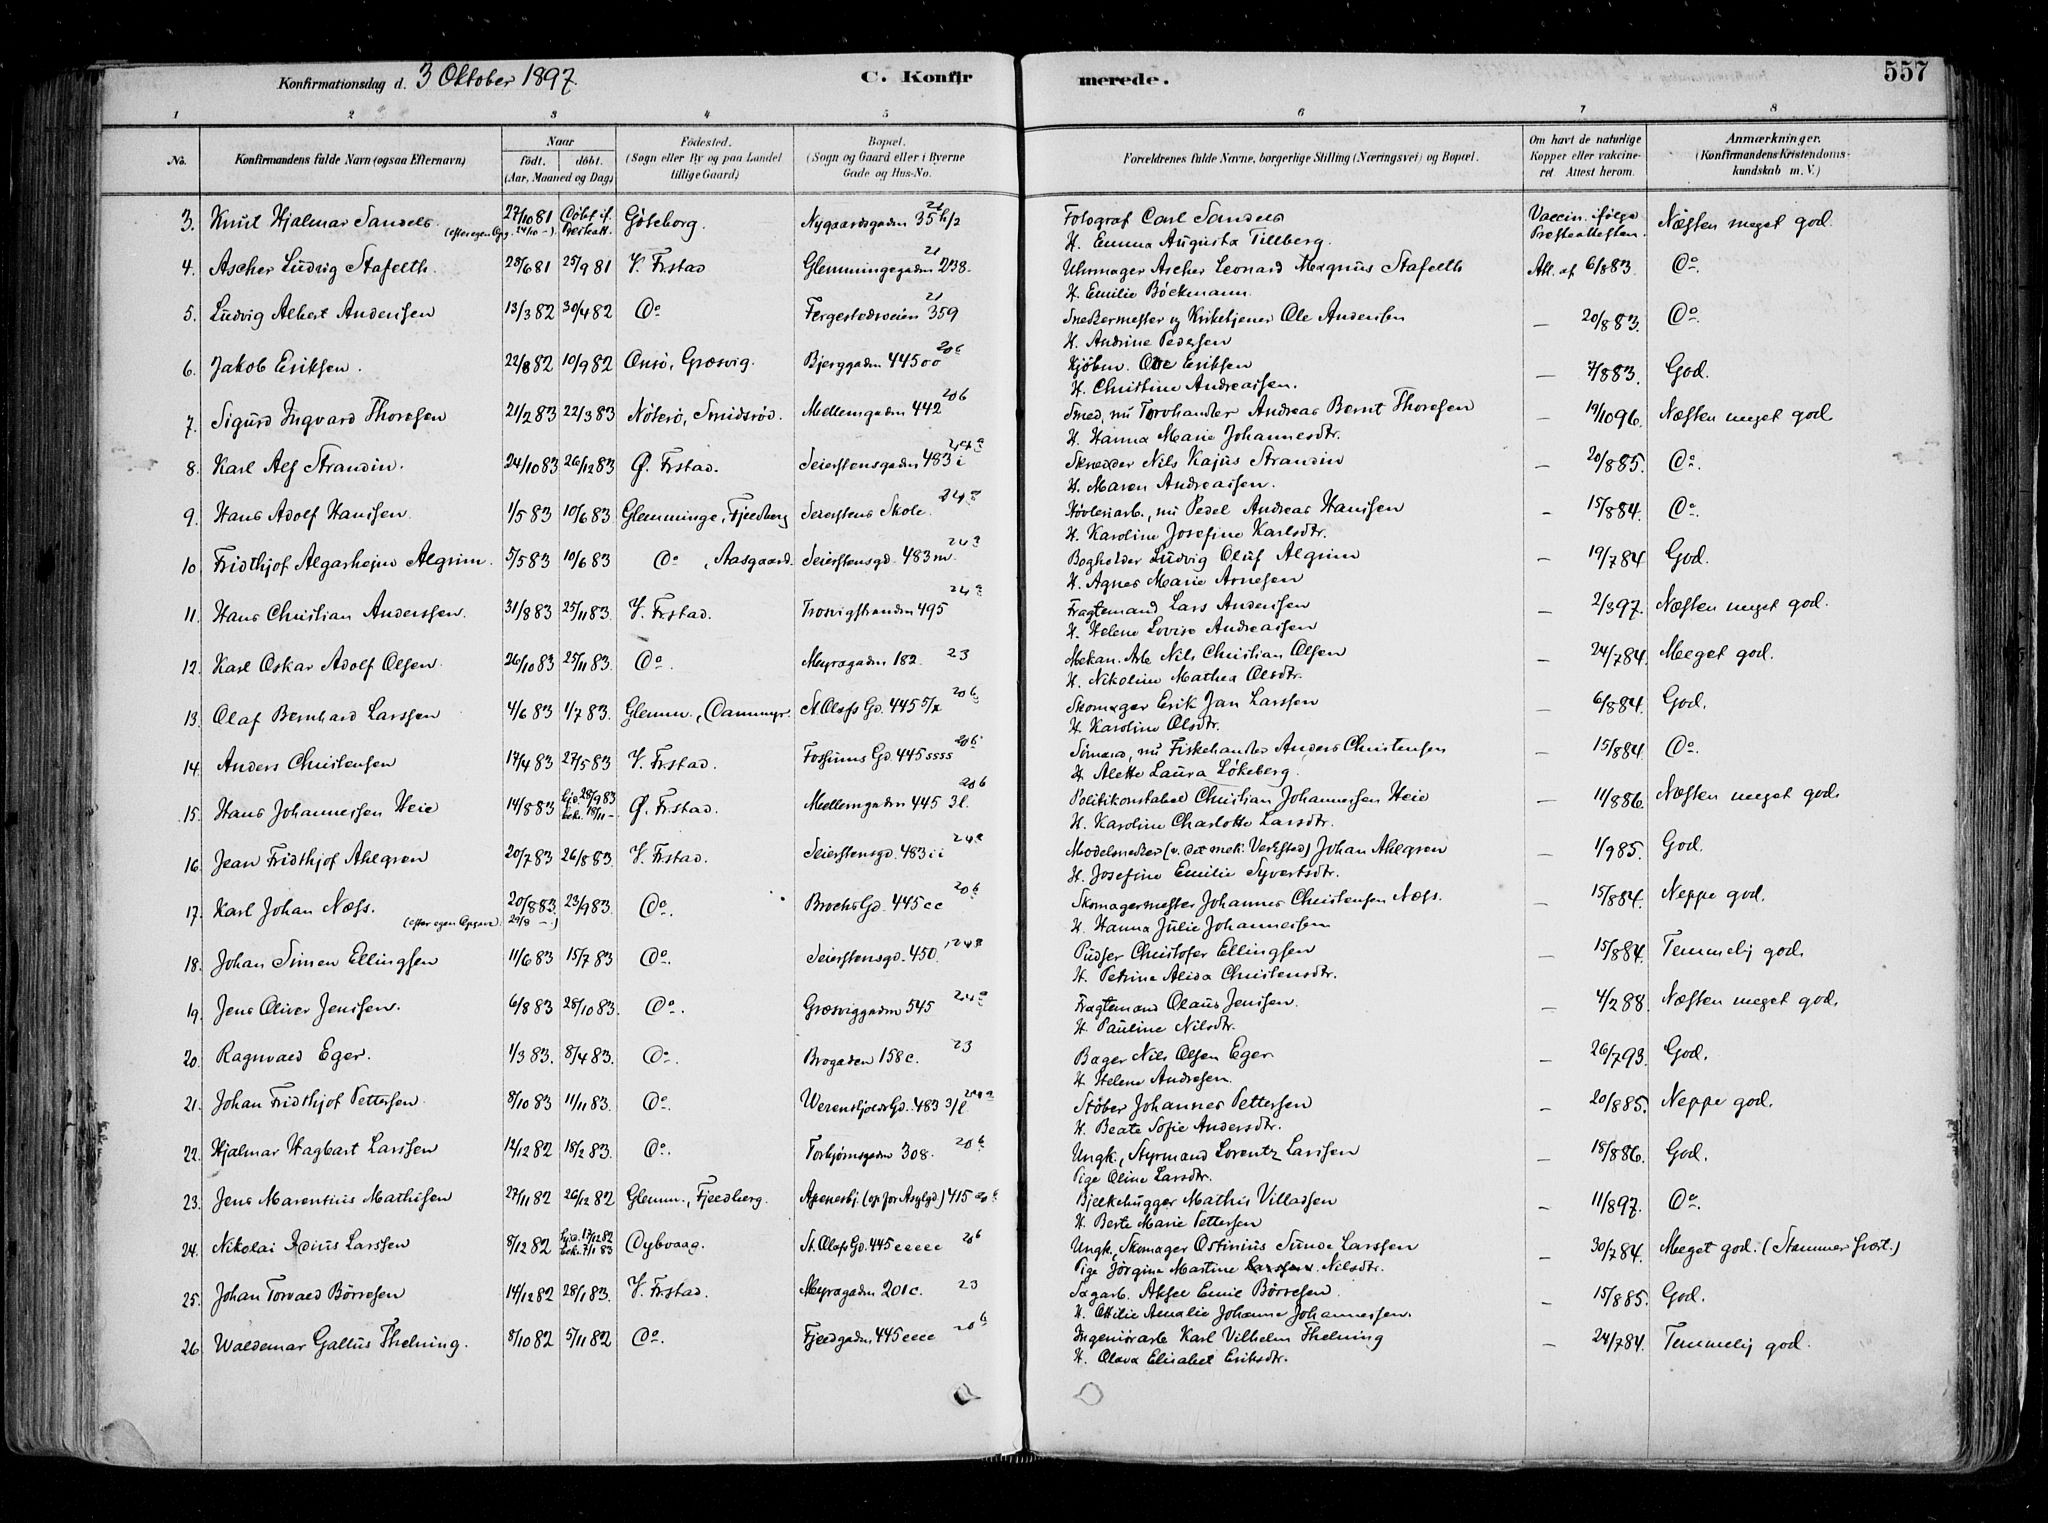 Konfirmationsdag d. 3 Oktober 1897.
C. Konfirmerede.
557
1 2 3 4 5 6 7 8
No. Konfirmandens fulde Navn (ogsaa Efternavn) Naar født. døbt. (Aar, Maaned og Dag) Fødested. (Sogn eller By og paa Landet tillige Gaard) Bopæl. (Sogn og Gaard eller i Byerne Gade og Hus-No. Forældrenes fulde Navne, borgerlige Stilling (Næringsvei) og Bopæl. Om havt de naturlige Kopper eller vakcineret. Attest herom. Anmærkninger. (Konfirmandens Kristendomskundskab m. V.)
3. Knut Hjalmar Sandels 27/10 81 Døbt if. Göteborg. Nygaardsgaden 35 b/2 21 Fotograf Carl Sandels Vaccin. ifølge Næsten meget god.
(efter egen Opg. 24/10 -) Presteatt. H. Emma Augusta Tillberg. Presteattesten.
4. Ascher Ludvig Stafelth. 28/6 81 25/9 81 V. Frstad Glemmingegaden 238. 21 Uhrmager Ascher Leonard Magnus Stafelth Att. af 6/8 83. Do.
H. Emilie Böckmann.
5. Ludvig Albert Anderssen 13/3 82 30/4 82 Do Fergestadsveien 359 21 Snedkermester og Kirketjener Ole Anderssen — 20/8 83. Do.
H. Andrine Pedersen
6. Jakob Eriksen. 22/8 82 10/9 82 Onsö, Græsvig. Bjerggaden 445 oo 20 b Kjöbm. Ole Eriksen — 7/8 83. God.
H. Christine Andreassen.
7. Sigurd Ingvard Thoresen 21/2 83 22/3 83 Nøterø, Smidsrød. Mellemgaden 442 20 b Smed, nu Torvhandler Andreas Bernt Thoresen — 19/10 96. Næsten meget god
H. Hanna Marie Johannesdtr.
8. Karl Alf Strandin. 24/10 83 26/12 83 Ø. Frstad. Seierstensgaden 483 i 24 a Skrædder Nils Kajus Strandin — 20/8 85. Do.
H. Maren Andreassen.
9. Hans Adolf Hanssen. 1/5 83 10/6 83 Glemminge, Fjeldberg Seierstens Skole. 24 a Høvleriarb., nu Pedel Andreas Hanssen — 15/8 84. Do.
H. Karoline Josefine Karlsdtr.
10 Fridthjof Algarheim Algrim. 5/5 83 10/6 83 Do, Aasgaard. Seierstensgd. 483 m. 24 a Bogholder Ludvig Oluf Algrim — 19/7 84 God.
H. Agnes Marie Arnesen
11. Hans Christian Anderssen. 31/8 83 25/11 83. V. Frstad. Trosvigstranden 495 24 a Fragtemand Lars Anderssen — 2/3 97. Næsten meget god.
H. Helene Lovise Andreassen
12. Karl Oskar Adolf Olsen. 26/10 83 25/11 83. Do. Myragaden 182. 23 Mekan. Arb. Nils Christian Olsen — 24/7 84. Meget god.
H. Nikoline Mathea Olsdtr.
13. Olaf Bernhard Larssen 4/6 83 1/7 83. Glemm., Dammyr. St. Olafs Gd. 445 5/x 20 b Skomager Erik Jan Larssen — 6/8 84. God.
H. Karoline Olsdtr.
14. Anders Christensen 17/4 83 27/5 83 V. Frstad. Fossums Gd. 445 ssss 20 b Sömand, nu Fiskehandler Anders Christensen — 15/8 84 Do.
H. Alette Laura Lökeberg.
15. Hans Johannessen Heie 14/8 83 hjd. 28/9 83 bekr. 18/11 - Ø. Frstad. Mellemgaden 445 3 l. 20 b Politikonstabel Christian Johannessen Heie — 11/8 86. Næsten meget god.
H. Karoline Charlotte Larsdtr.
16. Jean Fridthjof Ahlgren 20/7 83 26/8 83. V. Frstad. Seierstensgd. 483 ii 24 a Modelsnedker (v. det mek. Verksted) Johan Ahlgren — 1/9 85. God.
H. Josefine Emilie Syvertsdtr.
17. Karl Johan Næss. 20/8 83. 23/9 83. Do. Brochs Gd. 445 cc 20 b Skomagermester Johannes Christensen Næss. — 15/8 84. Neppe god.
(efter egen Opgave 29/8 -) H. Hanna Julie Johannessen
18. Johan Simen Ellingsen 11/6 83 15/7 83 Do. Seierstensgd. 450. 24 a Pudser Christofer Ellingsen — 15/8 84. Temmelig god.
H. Petrine Alida Christensdtr.
19. Jens Oliver Jenssen. 6/8 83 28/10 83. Do. Græsviggaden 545 24 a Fragtemand Olaus Jenssen. — 4/2 88. Næsten meget god.
H. Pauline Nilsdtr.
20. Ragnvald Eger. 1/3 83. 8/4 83. Do. Brogaden 158 c. 23 Bager Nils Olsen Eger — 26/7 93. God.
H. Helene Andresen.
21. Johan Fridthjof Pettersen. 8/10 83 11/11 83. Do. Werenskjolds Gd. 483 3/l 24 a Støber Johannes Pettersen — 20/8 85. Neppe god.
H. Beate Sofie Andersdtr.
22. Hjalmar Hagbart Larssen 14/12 82 18/2 83. Do. Torbjørnsgaden 308. 20 b Ungk., Styrmand Lorentz Larssen — 18/8 86. God.
Pige Oline Larsdtr.
23. Jens Marentius Mathisen 27/11 82 26/12 82 Glemm., Fjeldberg. Apenesbj. (op for Asylgd.) 415 20 b Bjelkehugger Mathis Villadsen — 11/8 97. Do.
H. Berte Marie Pettersen
24. Nikolai Larssen 8/12 82 hjd. 17/12 82 bekr. 7/1 83 Dybvaag. St. Olafs Gd. 445 eeeee 20 b Ungk., Skomager Ostinius Sunde Larssen — 30/7 84. Meget god. (Stammer svært.)
Pige Jörgine Martine Larssen. Nilsdtr.
25. Johan Torvald Börresen 14/12 82 28/1 83. V. Frstad. Myragaden 201 c. 23 Sagarb. Aksel Emil Börresen. — 15/8 85. God.
H. Ottilie Amalie Johanne Johannessen.
26 Waldemar Gallus Thelning. 8/10 82 5/11 82 Do. Fjeldgaden 445 eeee 20 b Ingeniörarb. Karl Vilhelm Thelning — 24/7 84. Temmelig god.
H. Olava Elisabet Eriksdtr.